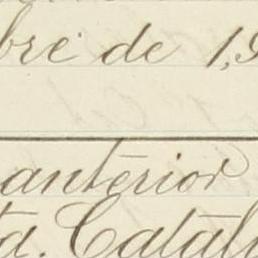 bre de 1,9
anterior
ta. Catal